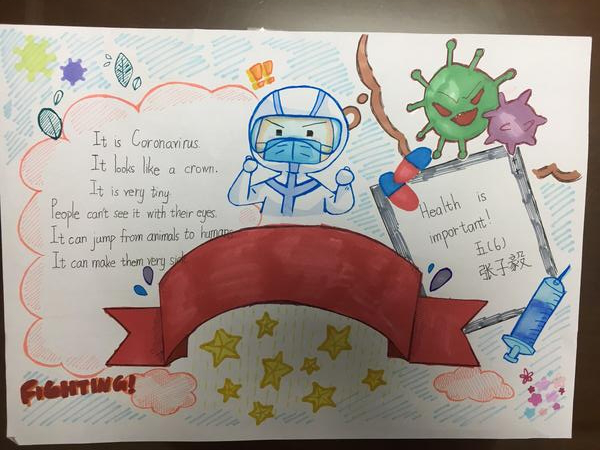 It is Coronavirus.
It looks like a crown.
It is very tiny.
People can't see it with their eyes.
It can jump from animals to humans
It can make them very
Health is
important!
五(6)
张子毅
FIGHTING!